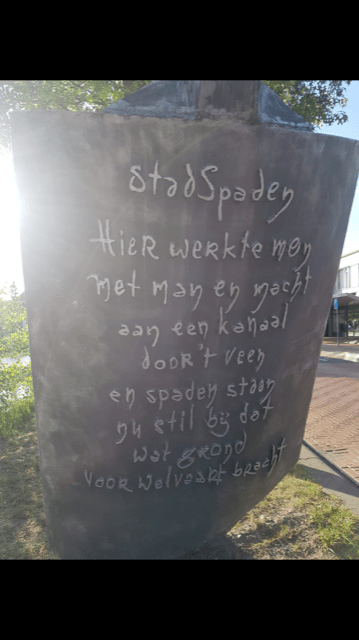 StadSpaden
Hier werkte men
met man en macht
aan een kanaal
door't veen
en spaden staan
nu stil bij dat
wat grond
voor welvaart bracht